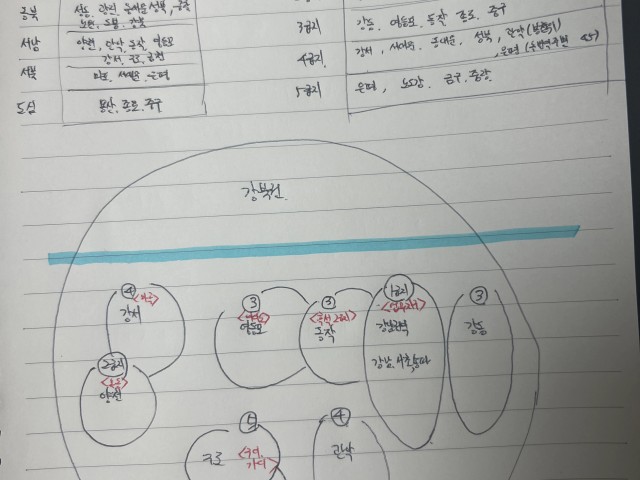 성동, 광진, 동대문, 성북, 중랑
동북
노원, 도봉, 강북
서남
양천, 관악, 동작, 영등포
강서, 구로, 금천
서북
마포, 서대문, 은평
도심
용산, 종로, 중구
3급지
강동, 영등포, 동작, 종로, 중구
4급지
강서, 서대문, 동대문, 성북, 관악
5급지
은평, 노도강, 금구, 중랑
강북권
④
강서
<마곡>
2급지
<목동>
양천
③
영등포
③
동작
1급지
강남권역
강남, 서초, 송파
③
강동
⑤
구로
④
관악